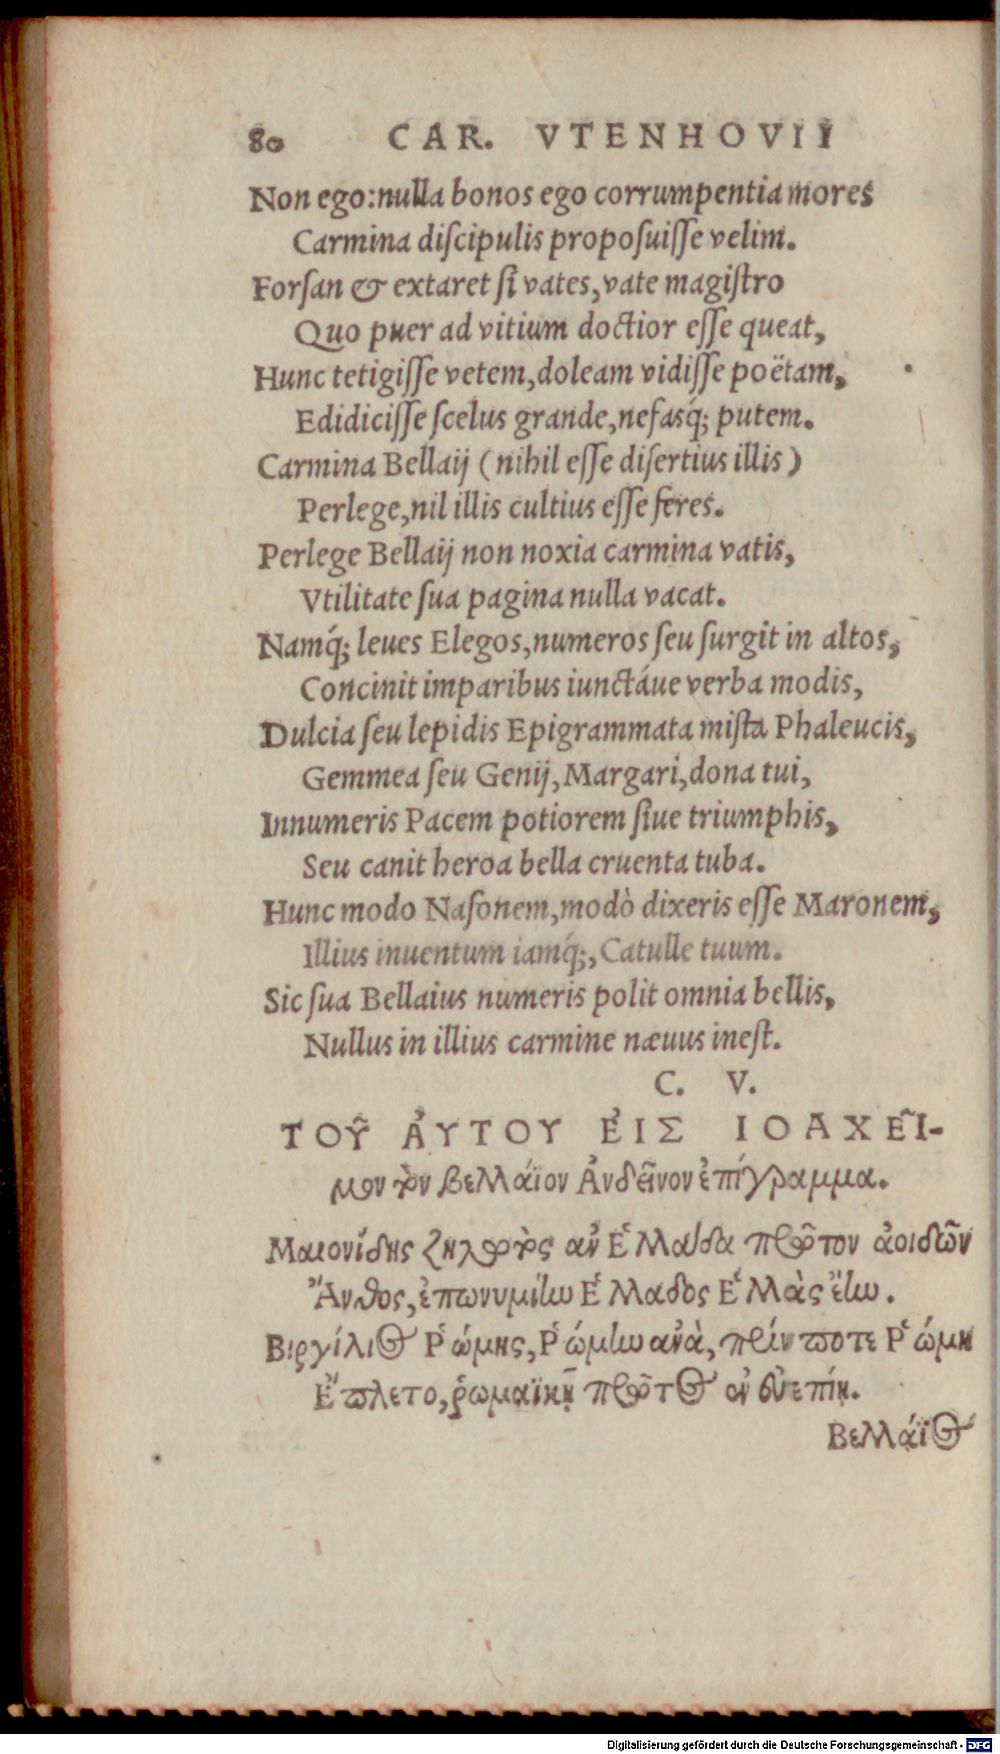 80 CAR. VTENHOVII
Non ego: nulla bonos ego corrumpentia mores
Carmina diſcipulis propoſuiſſe velim.
Forſan & extaret ſi vates, vate magiſtro
Quo puer ad vitium doctior eſſe queat,
Hunc tetigiſſe vetem, doleam vidiſſe poëtam,
Edidiciſſe ſcelus grande, nefasq́; putem.
Carmina Bellaij (nihil eſſe diſertius illis)
Perlege, nil illis cultius eſſe feres.
Perlege Bellaij non noxia carmina vatis,
Vtilitate ſua pagina nulla vacat.
Namq́; leues Elegos, numeros ſeu ſurgit in altos,
Concinit imparibus iunctáue verba modis,
Dulcia ſeu lepidis Epigrammata miſta Phaleucis,
Gemmea ſeu Genij, Margari, dona tui,
Innumeris Pacem potiorem ſiue triumphis,
Seu canit heroa bella cruenta tuba.
Hunc modo Naſonem, modò dixeris eſſe Maronem,
Illius inuentum iamq́;, Catulle tuum.
Sic ſua Bellaius numeris polit omnia bellis,
Nullus in illius carmine næuus ineſt.
C. V.
ΤΟΥ͂ ἈΥΤΟΥ ἘΙΣ ΙΟΑΧΕΙ͂-
μον τὸν Βελλάϊον Ἀνδεῖνον ἐπίγραμμα.
Μαιονίδης ἀν Ἑλλάδα πρῶτον ἀοιδῶν
Ἄνθος, ἐπωνυμίην Ἑλλαδος Ἑλλὰς ἔην.
Βιργίλιος Ῥώμης, Ῥώμην ἀνὰ, πρίν ποτε Ῥώμη
Ἔπλετο, ῥωμαϊκῇ πρῶτος ἐν εὐεπίῃ.
Βελλάϊος
Digitalisierung gefördert durch die Deutsche Forschungsgemeinschaft - DFG